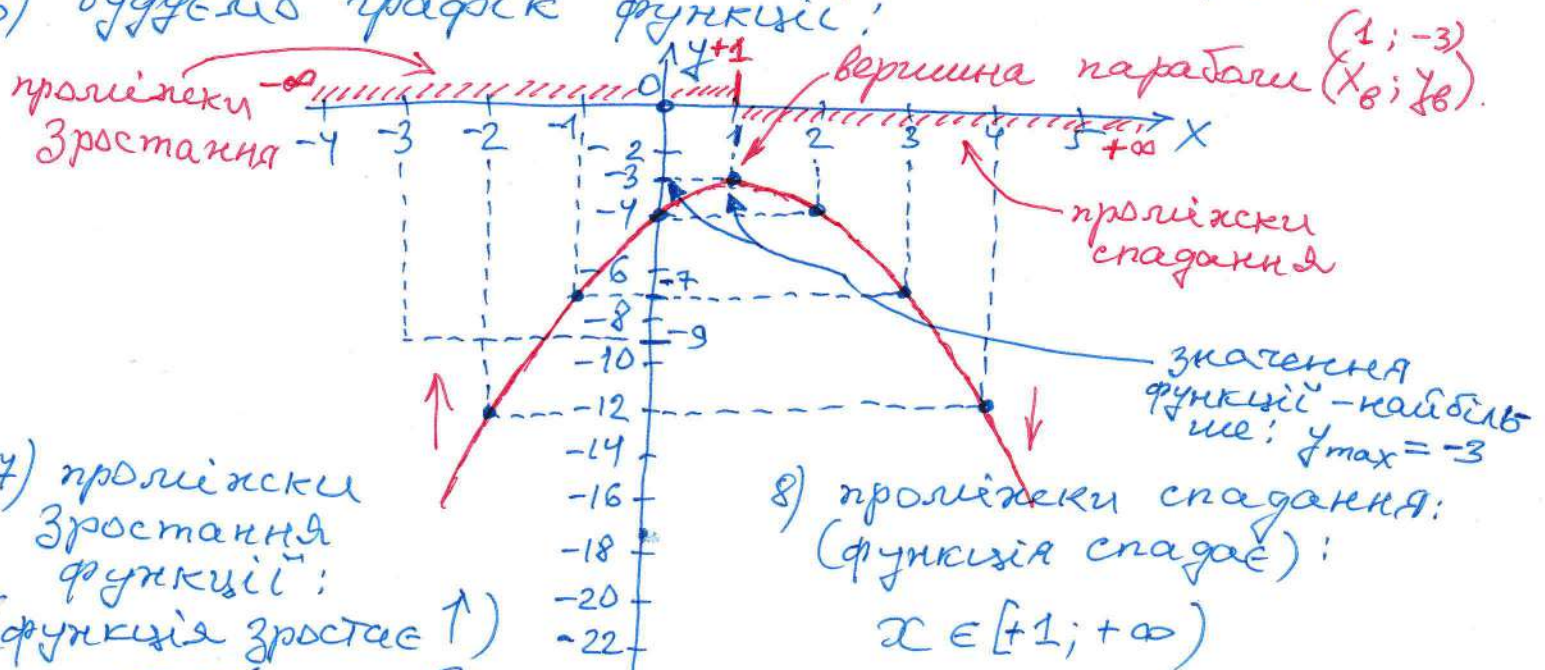 6) будуємо графік функції:
(1; -3)
проміжки зростання
-∞
y
+1
0
вершина параболи (xв; yв).
-4 -3 -2 -1 1 2 3 4 5 +∞ X
-2
-3
-4
проміжки
спадання
-6
-7
-8
-9
-10
-12
-14
-16
-18
-20
-22
значення
функції - найбіль
ше: ymax = -3
7) проміжки
зростання
функції:
(функція зростає ↑)
8) проміжки спадання:
(функція спадає):
x ∈ [+1; +∞)